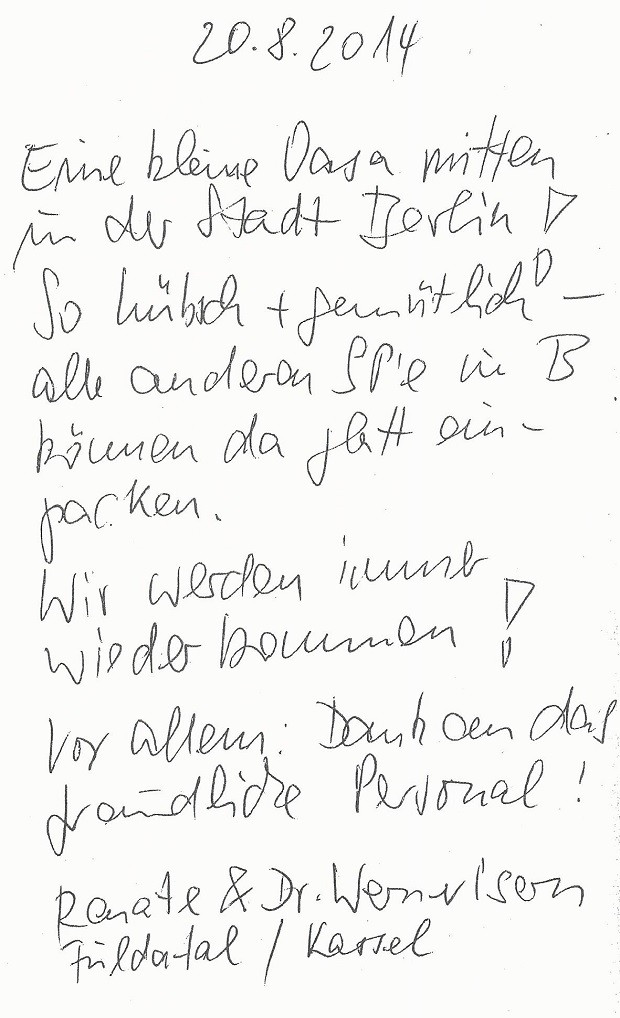 20.8.2014
Eine kleine Oasa mitten
in der Stadt Berlin!
So hübsch + gemütlich! –
alle anderen SP'e in B
können da glatt ein-
packen.
Wir werden immer
wieder kommen!
Vor allem: Dank an das
freundliche Personal!
Renate & Dr. Werner
Fuldatal / Kassel